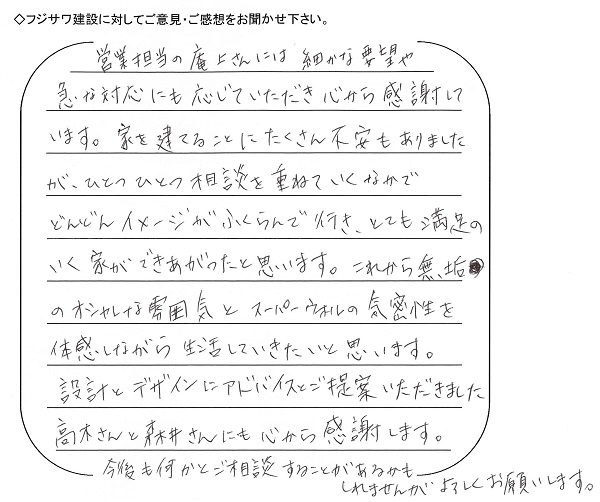 ◇フジサワ建設に対してご意見・ご感想をお聞かせ下さい。
営業担当の庵上さんには 細かな要望や
急な対応にも応じていただき心から感謝して
います。家を建てることにたくさん不安もありました
が、ひとつひとつ相談を重ねていくなかで
どんどんイメージがふくらんで行き、とても満足の
いく家ができあがったと思います。これから無垢
のオシャレな雰囲気とスーパーウォルの気密性を
体感しながら生活していきたいと思います。
設計とデザインにアドバイスとご提案いただきました
高木さんと森井さんにも心から感謝します。
今後も何かとご相談することがあるかも
しれませんがよろしくお願いします。